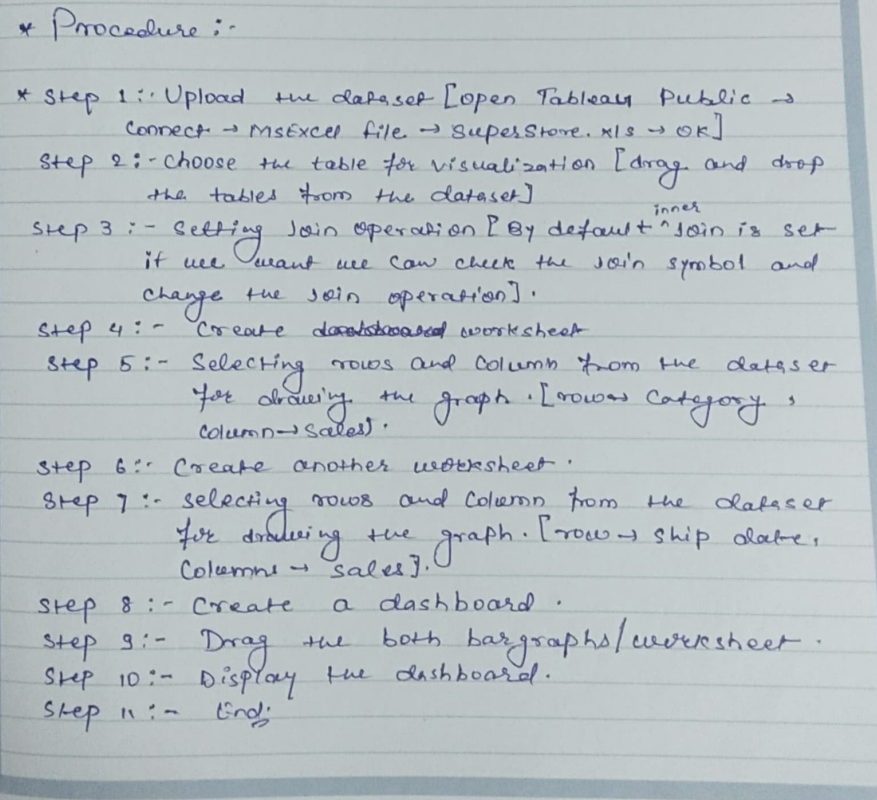 * Procedure :-
* Step 1 :- Upload the dataset [open Tableau Public →
connect → MsExcel file → SuperStore.xls → OK]
Step 2 :- Choose the table for visualization [drag and drop
the tables from the dataset]
Step 3 :- Setting Join operation [By default ^inner Join is set
if we want we can check the join symbol and
change the join operation].
Step 4 :- Create worksheet
Step 5 :- Selecting rows and column from the dataset
for drawing the graph. [row → Category,
column → sales].
Step 6 :- Create another worksheet.
Step 7 :- selecting rows and column from the dataset
for drawing the graph. [row → ship date,
Columns → sales].
Step 8 :- Create a dashboard.
Step 9 :- Drag the both bargraphs/worksheet.
Step 10 :- Display the dashboard.
Step 11 :- End;